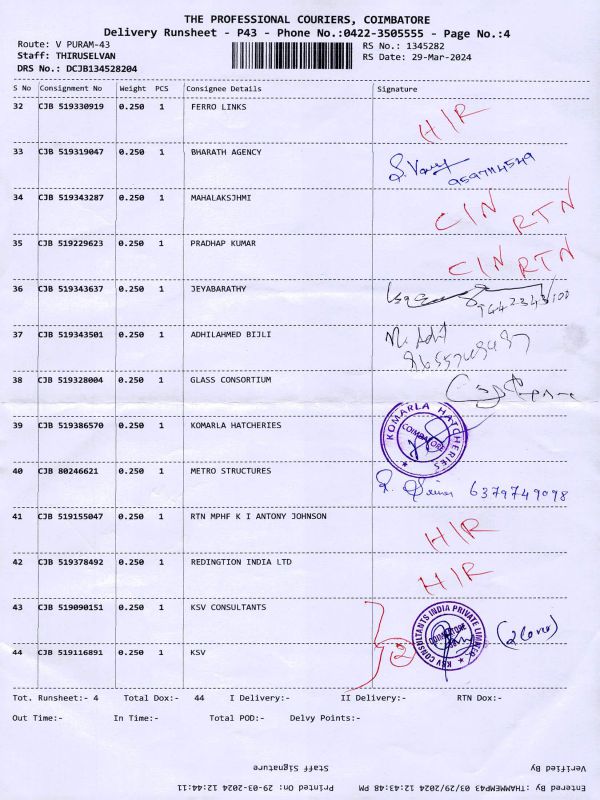 THE PROFESSIONAL COURIERS, COIMBATORE
Delivery Runsheet - P43 - Phone No.:0422-3505555 - Page No.:4
Route: V PURAM-43 RS No.: 1345282
Staff: THIRUSELVAN RS Date: 29-Mar-2024
DRS No.: DCJB134528204
S No Consignment No Weight PCS Consignee Details Signature
32 CJB 519330919 0.250 1 FERRO LINKS H/R
33 CJB 519319047 0.250 1 BHARATH AGENCY
34 CJB 519343287 0.250 1 MAHALAKSJHMI C/N RTN
35 CJB 519229623 0.250 1 PRADHAP KUMAR C/N RTN
36 CJB 519343637 0.250 1 JEYABARATHY
37 CJB 519343501 0.250 1 ADHILAHMED BIJLI
38 CJB 519328004 0.250 1 GLASS CONSORTIUM
39 CJB 519386570 0.250 1 KOMARLA HATCHERIES KOMARLA HATCHERIES COIMBATORE
40 CJB 80246621 0.250 1 METRO STRUCTURES 6379749098
41 CJB 519155047 0.250 1 RTN MPHF K I ANTONY JOHNSON H/R
42 CJB 519378492 0.250 1 REDINGTION INDIA LTD H/R
43 CJB 519090151 0.250 1 KSV CONSULTANTS KSV CONSULTANTS INDIA PRIVATE LIMITED COIMBATORE
44 CJB 519116891 0.250 1 KSV 2
Tot. Runsheet:- 4 Total Dox:- 44 I Delivery:- II Delivery:- RTN Dox:-
Out Time:- In Time:- Total POD:- Delvy Points:-
Staff Signature Verified By
Printed On: 29-03-2024 12:44:11 Entered By :THAMMEMP43 03/29/2024 12:43:48 PM